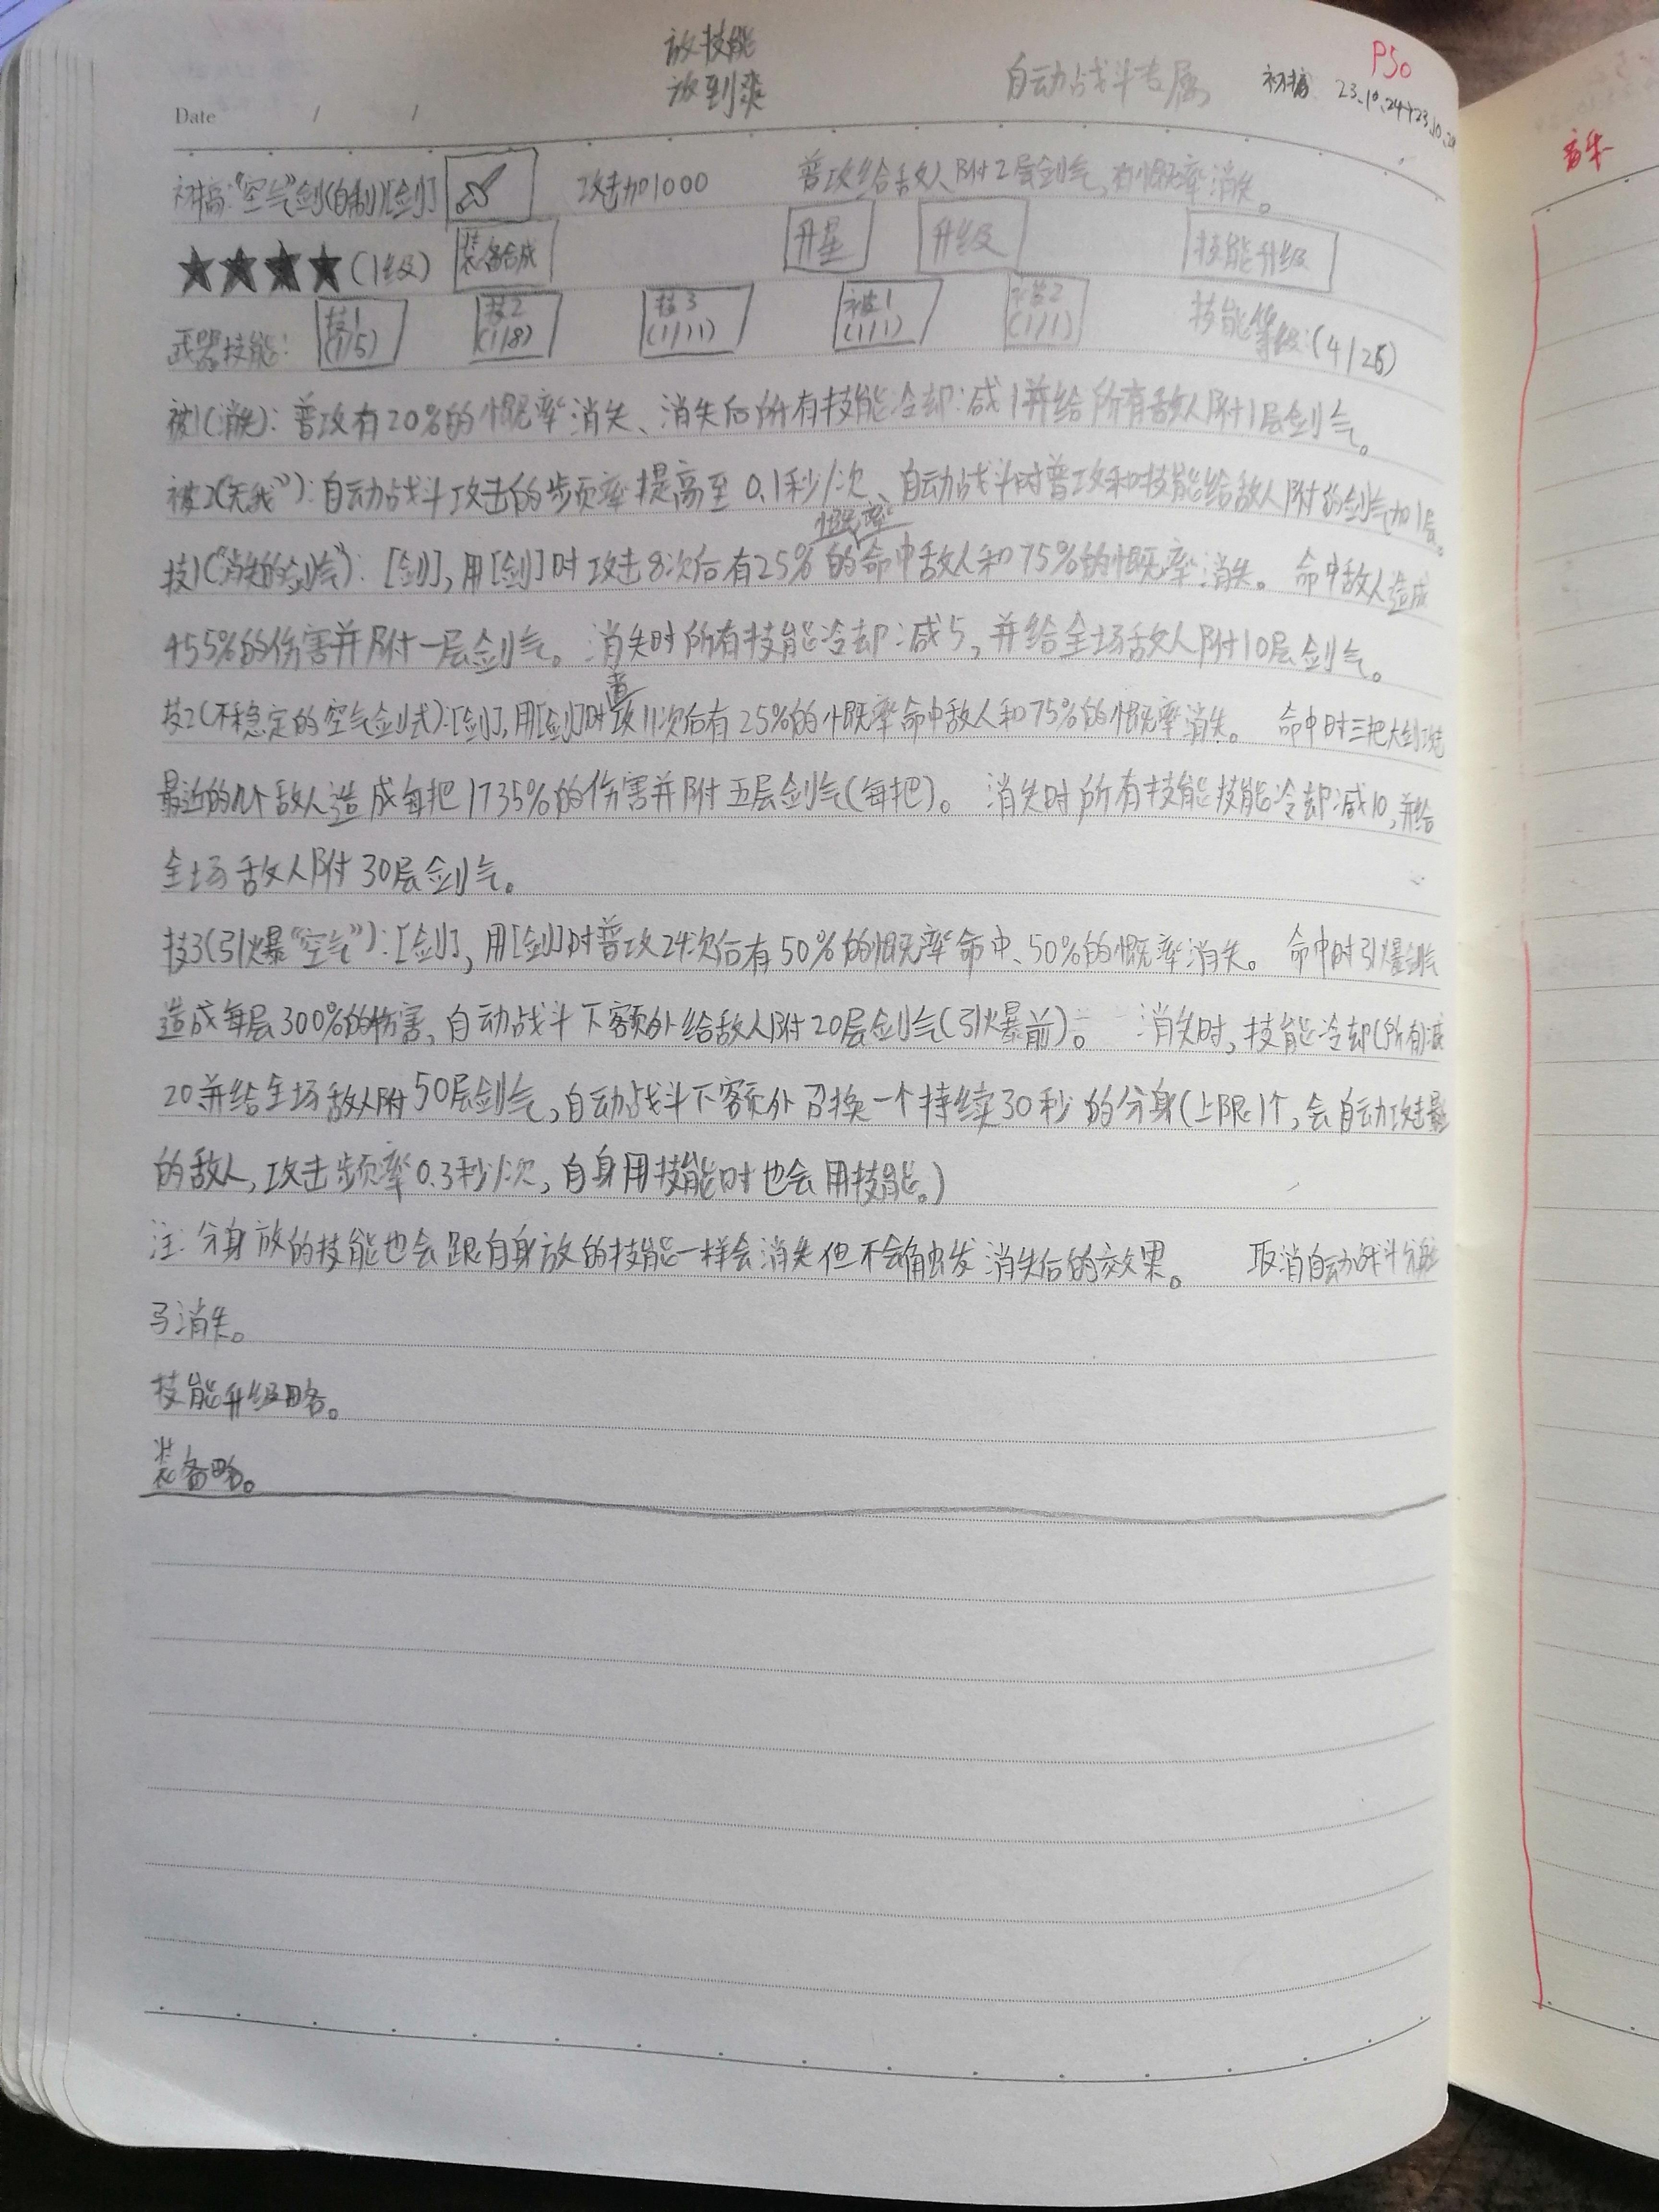 放技能
放到爽
自动战斗专属
初稿 23.10.24+23.10.
P50
Date / /
初稿:"空气"剑(自制)[剑] 攻击加1000 普攻给敌人附2层剑气,有概率消失。
★★★★(1级) 装备合成 升星 升级 技能升级
武器技能: 技1(1/5) 技2(1/8) 技3(1/11) 被1(1/1) 被2(1/1) 技能等级:(4/26)
被1(消失):普攻有20%的概率消失、消失后所有技能冷却减1并给所有敌人附1层剑气。
被2("无我"):自动战斗攻击的步频率提高至0.1秒/次、自动战斗时普攻和技能给敌人附的剑气加1层。
技1("消失的剑气"):[剑],用[剑]时攻击8次后有25%概率的命中敌人和75%的概率消失。 命中敌人造成
455%的伤害并附一层剑气。消失时所有技能冷却减5,并给全场敌人附10层剑气。
技2(不稳定的空气剑式):[剑],用[剑]时普攻11次后有25%的概率命中敌人和75%的概率消失。 命中时三把大剑攻击
最近的几个敌人造成每把1735%的伤害并附五层剑气(每把)。 消失时所有技能技能冷却减10,并给
全场敌人附30层剑气。
技3(引爆"空气"):[剑],用[剑]时普攻24次后有50%的概率命中、50%的概率消失。 命中时引爆剑气
造成每层300%的伤害,自动战斗下额外给敌人附20层剑气(引爆前)。 消失时,技能冷却(所有)减
20并给全场敌人附50层剑气,自动战斗下额外召换一个持续30秒的分身(上限1个,会自动攻击最近
的敌人,攻击步频率0.3秒/次,自身用技能时也会用技能。)
注:分身放的技能也会跟自身放的技能一样会消失但不会触发消失后的效果。 取消自动战斗分身
马消失。
技能升级略。
装备略。
音乐